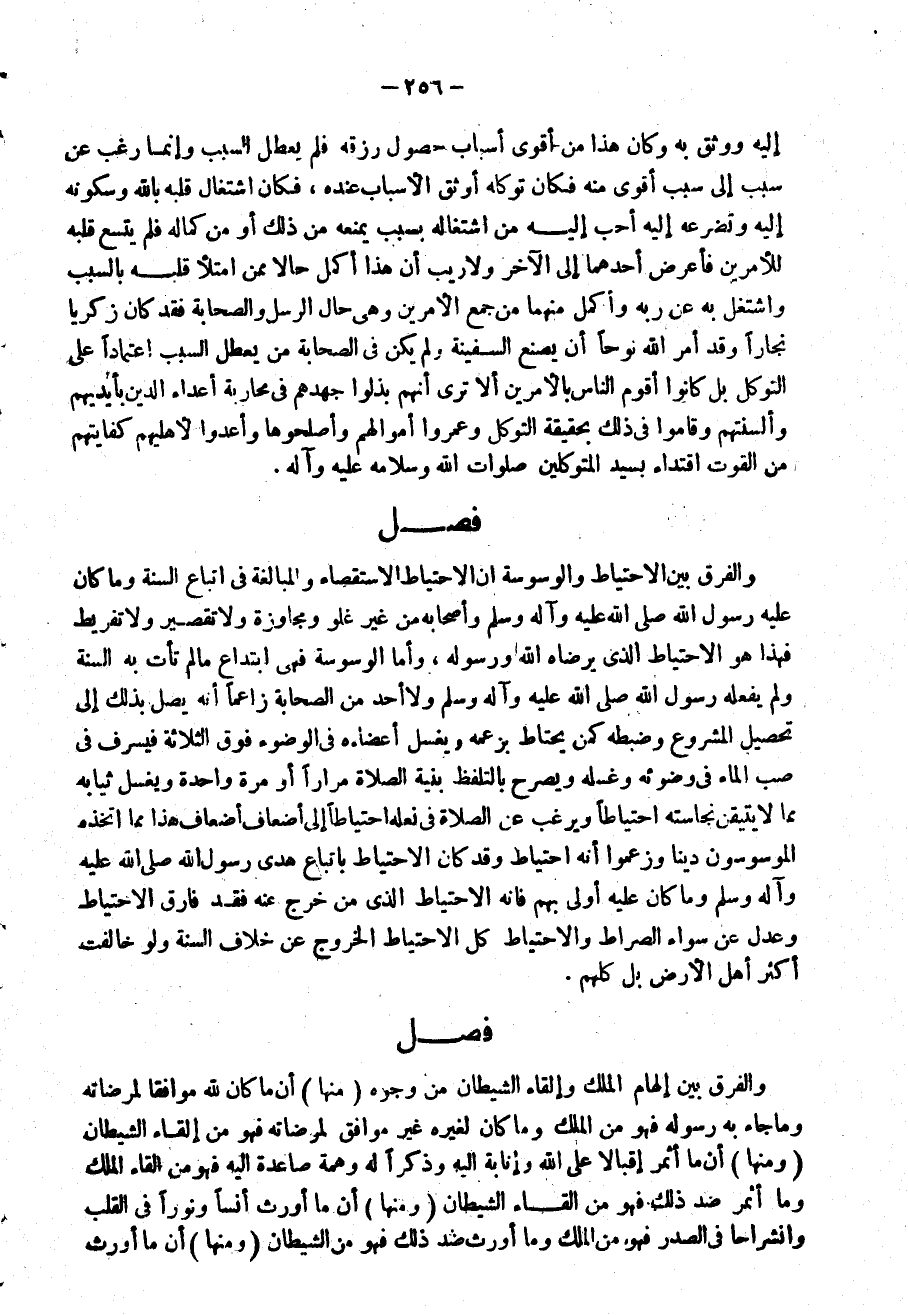 — ٢٥٦ —
إليه ووثق به وكان هذا من أقوى أسباب حصول رزقه فلم يعطل السبب وإنما رغب عن
سبب إلى سبب أقوى منه فكان توكله أوثق الأسباب عنده ، فكان اشتغال قلبه بالله وسكونه
إليه وتضرعه إليه أحب إليـــه من اشتغاله بسبب يمنعه من ذلك أو من كماله فلم يتسع قلبه
للأمرين فأعرض أحدهما إلى الآخر ولاريب أن هذا أكمل حالا ممن امتلأ قلبـــه بالسبب
واشتغل به عن ربه وأكمل منهما من جمع الأمرين وهى حال الرسل والصحابة فقد كان زكريا
نجاراً وقد أمر الله نوحاً أن يصنع السفينة ولم يكن فى الصحابة من يعطل السبب اعتماداً على
التوكل بل كانوا أقوم الناس بالأمرين ألا ترى أنهم بذلوا جهدهم فى محاربة أعداء الدين بأيديهم
وألسنتهم وقاموا فى ذلك بحقيقة التوكل وعمروا أموالهم وأصلحوها وأعدوا لأهليهم كفايتهم
من القوت اقتداء بسيد المتوكلين صلوات الله وسلامه عليه وآله .
فصـــل
والفرق بين الاحتياط والوسوسة ان الاحتياط الاستقصاء والمبالغة فى اتباع السنة وما كان
عليه رسول الله صلى الله عليه وآله وسلم وأصحابه من غير غلو ومجاوزة ولا تقصـير ولا تفريط
فهذا هو الاحتياط الذى يرضاه الله ورسوله ، وأما الوسوسة فهى ابتداع مالم تأت به السنة
ولم يفعله رسول الله صلى الله عليه وآله وسلم ولا أحد من الصحابة زاعماً أنه يصل بذلك إلى
تحصيل المشروع وضبطه كمن يحتاط بزعمه ويغسل أعضاءه فى الوضوء فوق الثلاثة فيسرف فى
صب الماء فى وضوئه وغسله ويصرح بالتلفظ بنية الصلاة مراراً أو مرة واحدة ويغسل ثيابه
مما لا يتيقن نجاسته احتياطاً ويرغب عن الصلاة فى نعله احتياطاً إلى أضعاف أضعاف هذا مما اتخذه
الموسوسون دينا وزعموا أنه احتياط وقد كان الاحتياط باتباع هدى رسول الله صلى الله عليه
وآله وسلم وما كان عليه أولى بهم فانه الاحتياط الذى من خرج عنه فقـد فارق الاحتياط
وعدل عن سواء الصراط والاحتياط كل الاحتياط الخروج عن خلاف السنة ولو خالفت
أكثر أهل الأرض بل كلهم .
فصـــل
والفرق بين إلهام الملك وإلقاء الشيطان من وجوه ( منها ) أن ما كان لله موافقا لمرضاته
وماجاء به رسوله فهو من الملك وما كان لغيره غير موافق لمرضاته فهو من إلقـاء الشيطان
( ومنها ) أن ما أثمر إقبالا على الله وإنابة اليه وذكراً له وهمة صاعدة اليه فهو من القاء الملك
وما أثمر ضد ذلك فهو من القـــاء الشيطان ( ومنها ) أن ما أورث أنساً ونوراً فى القلب
وانشراحا فى الصدر فهو من الملك وما أورث ضد ذلك فهو من الشيطان ( ومنها ) أن ما أورث